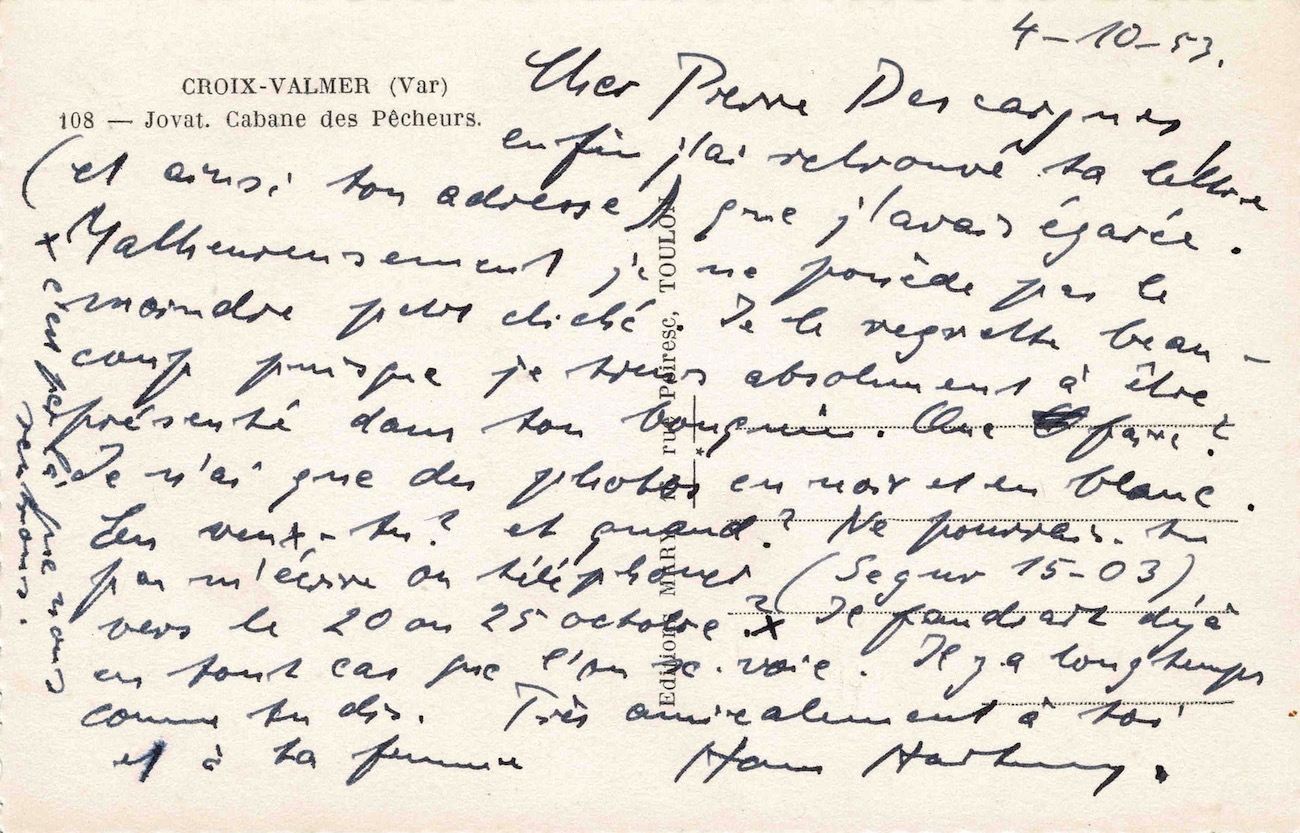 4-10-53.
CROIX-VALMER (Var)
108 — Jovat. Cabane des Pêcheurs.
Cher Pierre Descargues
enfin j'ai retrouvé ta lettre
(et ainsi ton adresse) que j'avais égarée.
Malheureusement je ne possède pas le
moindre petit cliché. Je le regrette beau-
coup puisque je tiens absolument à être
présenté dans ton bouquin. Que faire?
Je n'ai que des photos en noir et en blanc.
Les veux-tu? et quand? Ne pourrais-tu
pas m'écrire ou téléphoner (Segur 15-03)
vers le 20 ou 25 octobre? x Il faudrait déjà
en tout cas que l'on se voie. Il y a longtemps
comme tu dis. Très amicalement à toi
et à ta femme Hans Hartung.
x c'est par là que nous
rentrons.
Editions MRRY rue Peiresc, TOULON